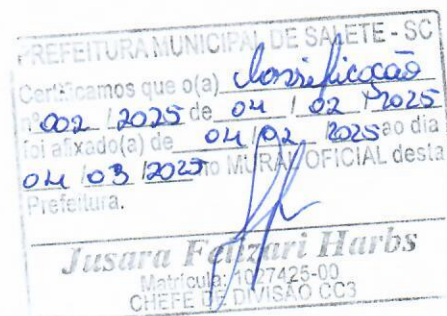 PREFEITURA MUNICIPAL DE SALETE - SC
Certificamos que o(a)
nº 002 / 2025 de 04 / 02 / 2025
foi afixado(a) de 04 / 02 / 2025 ao dia
04 / 03 / 2025 no MURAL OFICIAL desta
Prefeitura.
Jusara Harbs
Matrícula: 1027425-00
CHEFE DE DIVISÃO CC3